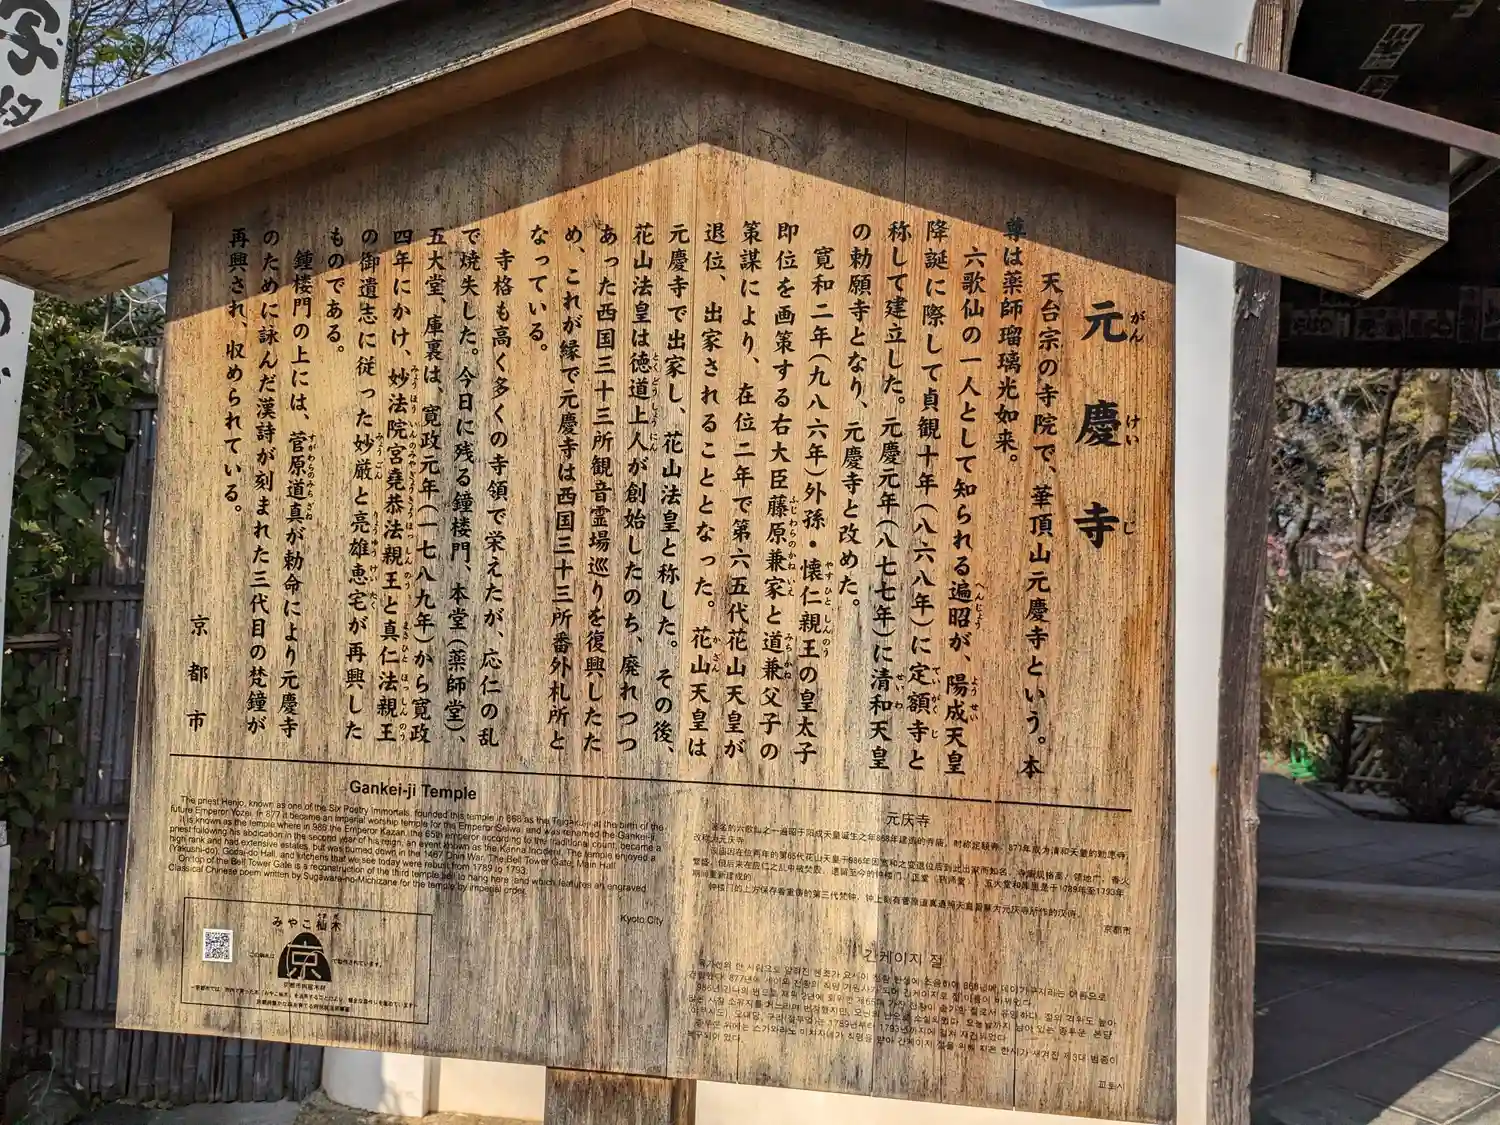 元慶寺
がんけいじ
天台宗の寺院で、華頂山元慶寺という。本
尊は薬師瑠璃光如来。
六歌仙の一人として知られる遍昭が、陽成天皇
降誕に際して貞観十年(八六八年)に定額寺と
称して建立した。元慶元年(八七七年)に清和天皇
の勅願寺となり、元慶寺と改めた。
寛和二年(九八六年)外孫・懐仁親王の皇太子
即位を画策する右大臣藤原兼家と道兼父子の
策謀により、在位二年で第六五代花山天皇が
退位、出家されることとなった。花山天皇は
元慶寺で出家し、花山法皇と称した。その後、
花山法皇は徳道上人が創始したのち、廃れつつ
あった西国三十三所観音霊場巡りを復興したた
め、これが縁で元慶寺は西国三十三所番外札所と
なっている。
寺格も高く多くの寺領で栄えたが、応仁の乱
で焼失した。今日に残る鐘楼門、本堂(薬師堂)、
五大堂、庫裏は、寛政元年(一七八九年)から寛政
四年にかけ、妙法院宮堯恭法親王と真仁法親王
の御遺志に従った妙厳と亮雄恵宅が再興した
ものである。
鐘楼門の上には、菅原道真が勅命により元慶寺
のために詠んだ漢詩が刻まれた三代目の梵鐘が
再興され、収められている。
京都市
Gankei-ji Temple
The priest Henjo, known as one of the Six Poetry Immortals, founded this temple in 868 as the at the birth of the
future Emperor Yozei. In 877 it became an imperial worship temple for the Emperor Seiwa, and was renamed the Gankei-ji.
It is known as the temple where in 986 the Emperor Kazan, the 65th emperor according to the traditional count, became a
priest following his abdication in the second year of his reign, an event known as the Kanna Incident. The temple enjoyed a
high rank and had extensive estates, but was burned down in the 1467 Onin War. The Bell Tower Gate, Main Hall
(Yakushi-do), Godai-do Hall, and kitchens that we see today were rebuilt from 1789 to 1793.
On top of the Bell Tower Gate is a reconstruction of the third temple bell to hang here, and which features an engraved
Classical Chinese poem written by Sugawara-no-Michizane for the temple by imperial order.
Kyoto City
元庆寺
京都市
간케이지 절
교토시
みやこ杣木
京